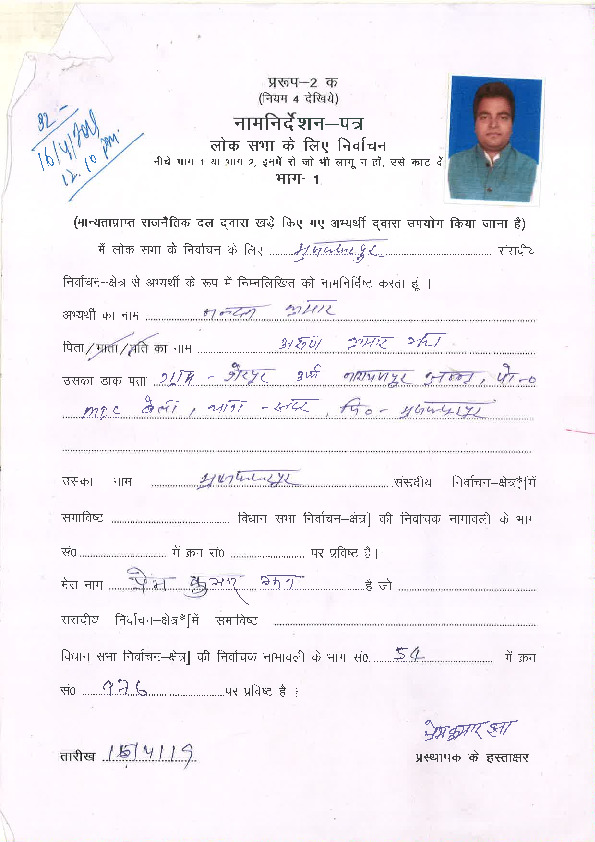 प्ररूप–2 क
(नियम 4 देखिये)
32
16/4/2019
12.10 pm.
नामनिर्देशन–पत्र
लोक सभा के लिए निर्वाचन
नीचे भाग 1 या भाग 2, इनमें से जो भी लागू न हों, उसे काट दें
भाग- 1
(मान्यताप्राप्त राजनैतिक दल द्वारा खड़े किए गए अभ्यर्थी द्वारा उपयोग किया जाना है)
मैं लोक सभा के निर्वाचन के लिए मुजफ्फरपुर संसदीय
निर्वाचन–क्षेत्र से अभ्यर्थी के रूप में निम्नलिखित को नामनिर्दिष्ट करता हूं ।
अभ्यर्थी का नाम कुमार
पिता/माता/पति का नाम अरुण कुमार झा
उसका डाक पता ग्राम - शेरपुर उर्फ नारायणपुर अनन्त, पो-०
थाना - सदर, जि०- मुजफ्फरपुर
उसका नाम मुजफ्फरपुर संसदीय निर्वाचन–क्षेत्र*[में
समाविष्ट विधान सभा निर्वाचन–क्षेत्र] की निर्वाचक नागावली के भाग
सं० में क्रम सं० पर प्रविष्ट है।
मेरा नाम प्रेम कुमार झा है जो
संसदीय निर्वाचन–क्षेत्र*[में समाविष्ट
विधान सभा निर्वाचन–क्षेत्र] की निर्वाचक नामावली के भाग सं० 54 में क्रम
सं० १७६ पर प्रविष्ट है :
प्रेम कुमार झा
तारीख 15/4/19 प्रस्थापक के हस्ताक्षर